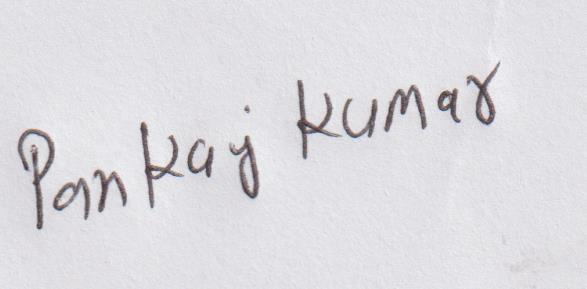 Pankaj Kumar